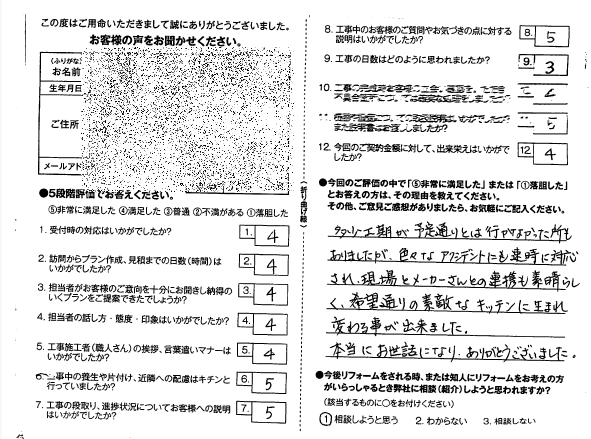 この度はご用命いただきまして誠にありがとうございました。
お客様の声をお聞かせください。
(ふりがな)
お名前
生年月日
ご住所
メールアド
●5段階評価でお答えください。
⑤非常に満足した ④満足した ③普通 ②不満がある ①落胆した
1. 受付時の対応はいかがでしたか? 1. 4
2. 訪問からプラン作成、見積までの日数(時間)は
いかがでしたか? 2. 4
3. 担当者がお客様のご意向を十分にお聞きし納得の
いくプランをご提案できたでしょうか? 3. 4
4. 担当者の話し方・態度・印象はいかがでしたか? 4. 4
5. 工事施工者(職人さん)の挨拶、言葉遣いマナーは
いかがでしたか? 5. 4
6. 工事中の養生や片付け、近隣への配慮はキチンと
行っていましたか? 6. 5
7. 工事の段取り、進捗状況についてお客様への説明
はいかがでしたか? 7. 5
(折り曲げ線)
8. 工事中のお客様のご質問やお気づきの点に対する
説明はいかがでしたか? 8. 5
9. 工事の日数はどのように思われましたか? 9. 3
10.
5
また説明書はお渡ししましたか?
12. 今回のご契約金額に対して、出来栄えはいかがで
したか? 12 4
●今回のご評価の中で「⑤非常に満足した」または「①落胆した」
とお答えの方は、その理由を教えてください。
その他、ご意見ご感想がありましたら、お気軽にご記入ください。
工期が予定通りとは行かなかった所も
ありましたが、色々なアクシデントにも迅時に対応
され、現場とメーカーさんとの連携も素晴らし
く、希望通りの素敵なキッチンに生まれ
変わる事が出来ました。
本当にお世話になり、ありがとうございました。
●今後リフォームをされる時、または知人にリフォームをお考えの方
がいらっしゃるとき弊社に相談(紹介)しようと思われますか?
(該当するものに○をお付けください)
① 相談しようと思う 2. わからない 3. 相談しない